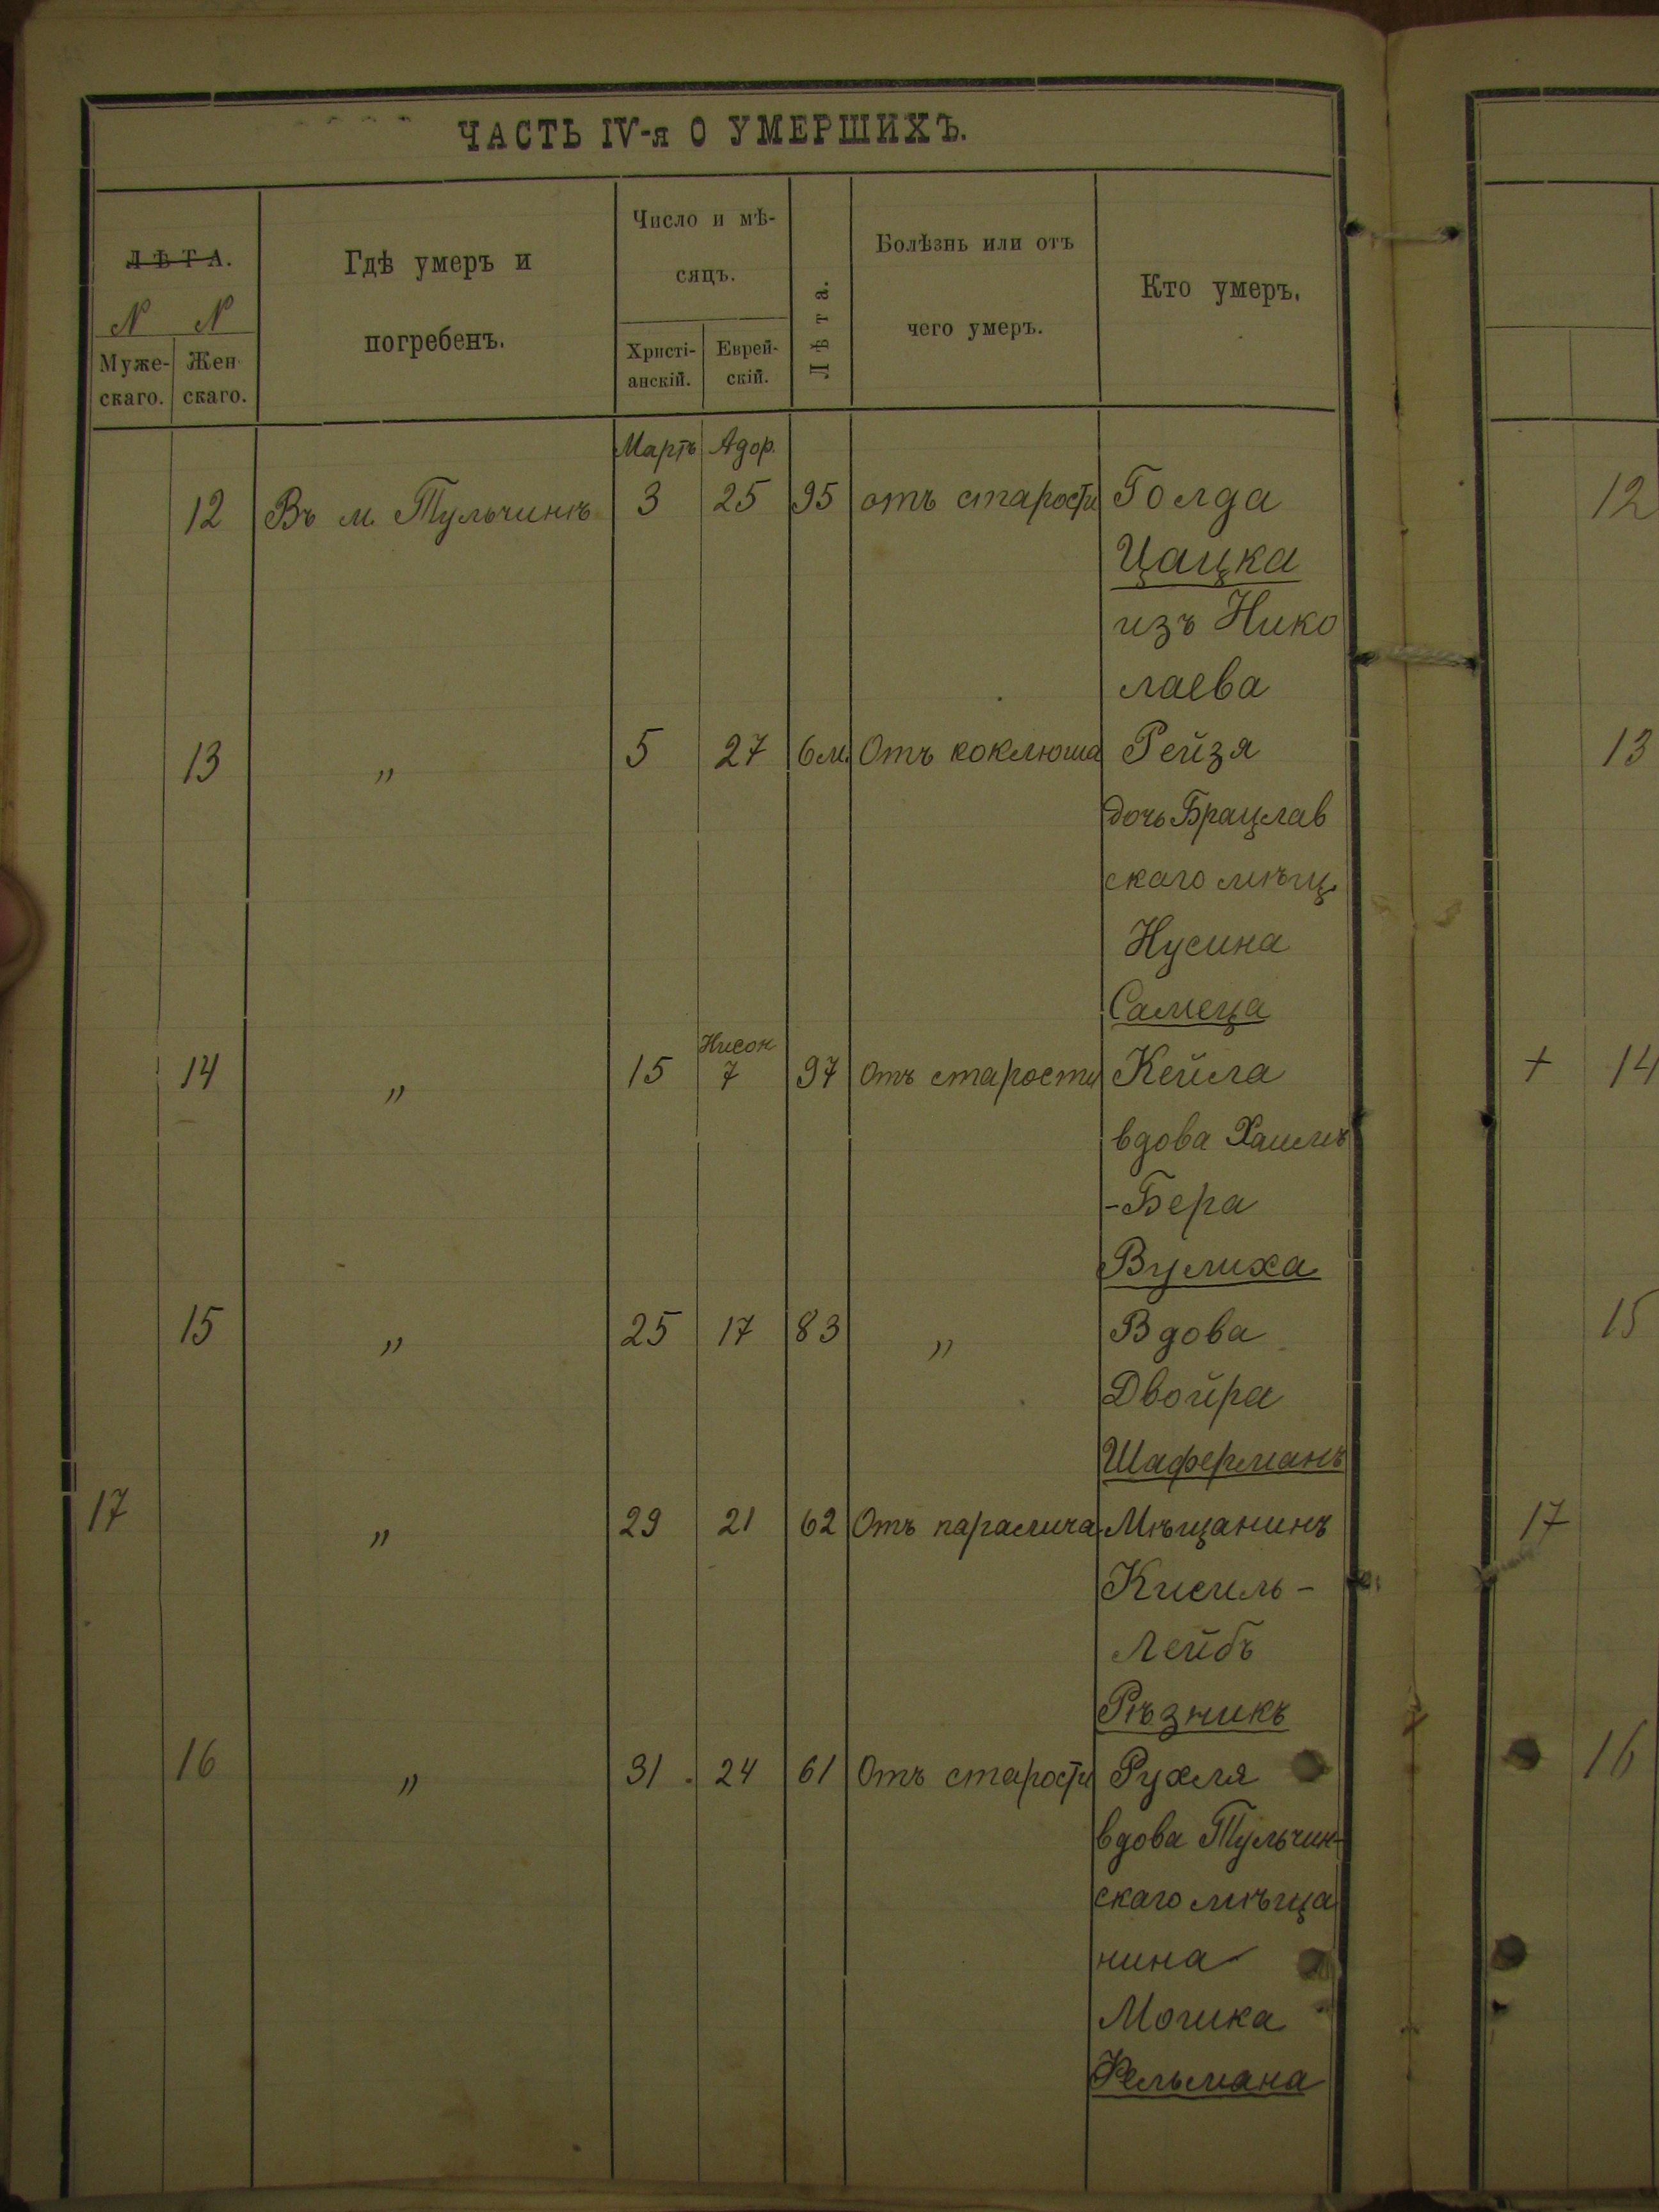 ЧАСТЬ IV-я О УМЕРШИХЪ.
ЛѢТА.
N N
Муже-
скаго.
Жен
скаго.
Гдѣ умеръ и
погребенъ.
Число и мѣ-
сяцъ.
Христі-
анскій.
Еврей-
скій.
Лѣта.
Болѣзнь или отъ
чего умеръ.
Кто умеръ.
Мартъ Адор.
12 Въ м. Тульчинѣ 3 25 95 отъ старости Голда 12
Цацка
изъ Нико
лаева
13 " 5 27 6м. Отъ коклюша Рейзя 13
дочь Брацлав
скаго мѣщ.
Нусина
Самеца
Нисон
14 " 15 7 97 Отъ старости Кейла + 14
вдова Хаимъ
-Бера
Вулиха
15 " 25 17 83 " Вдова 15
Двойра
Шаферманъ
17 " 29 21 62 Отъ паралича Мѣщанинъ 17
Кисиль-
Лейбъ
Рѣзникъ
16 " 31 24 61 Отъ старости Рухля 16
вдова Тульчин-
скаго мѣща
нина
Мошка
Фельмана